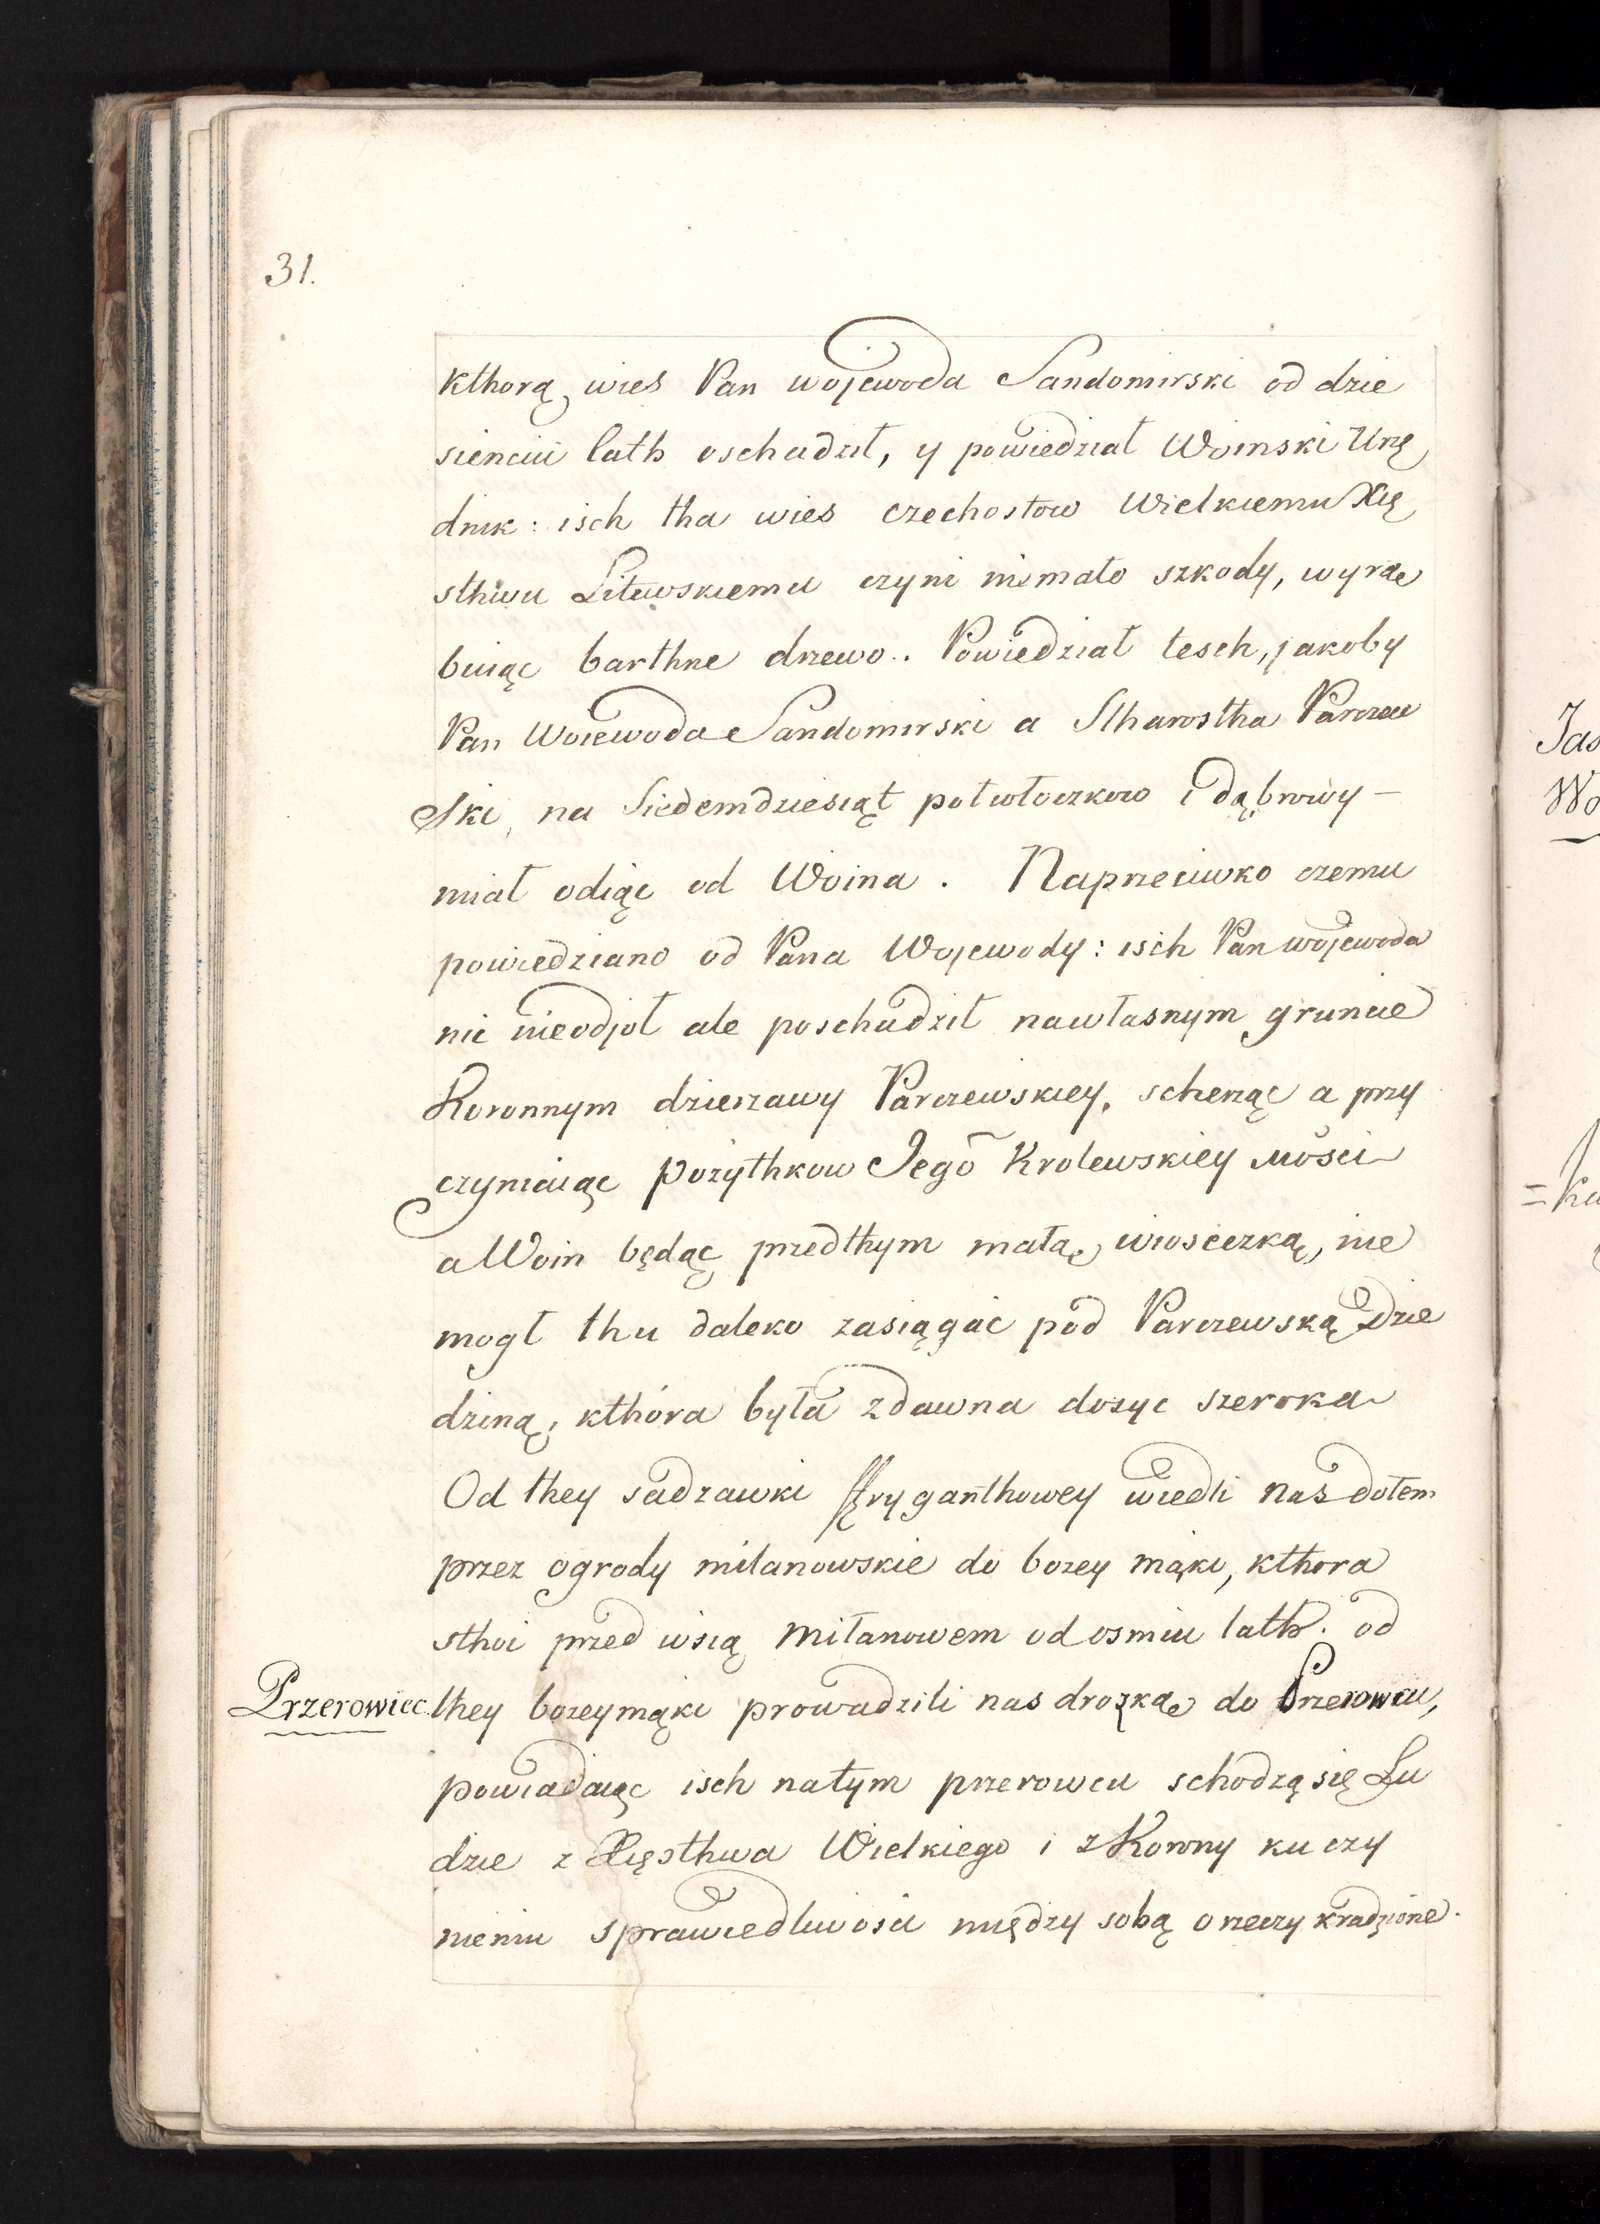 31.
kthorą wies Pan wojewoda Sandomirski od dzie
sienciu lath oschadził, y powiedział Woinski Urzę
dnik: isch tha wies czechostow Wielkiemu Xię
sthwu Litewskiemu czyni niemało szkody, wyrą
buiąc barthne drzewo. Powiedział tesch, jakoby
Pan Woiewoda Sandomirski a Stharostha Parczew
ski, na Siedemdziesiąt połwłoczkow i dąbrowy –
miał odiąc od Woina. Naprzeciwko czemu
powiedziano od Pana Wojewody: isch Pan wojewoda
nic nieodjoł ale poschadził nawłasnym gruncie
Koronnym dzierzawy Parczewskiey, scherząc a przy
czyniaiąc pożythkow Jego Krolewskiey Mości
a Woin będąc przedthym małą wiosczką, nie
mogł thu daleko zasiągać pod Parczewską Dzie
dziną, kthóra była zdawna dosyc szeroka
Od they sadzawki wiedli nas dołem
przez ogrody milanowskie do bozey mąki, kthora
sthoi przed wsią Miłanowem od osmiu lath. od
Przerowiec they bozeymąki prowadzili nas drozką do Przerowcu,
powiadaiąc isch natym przerowcu schodzą się Lu
dzie z Xięsthwa Wielkiego i z Korony ku czy
nieniu sprawiedliwości między sobą o rzeczy kradzione.
Jas
Wo
=ku